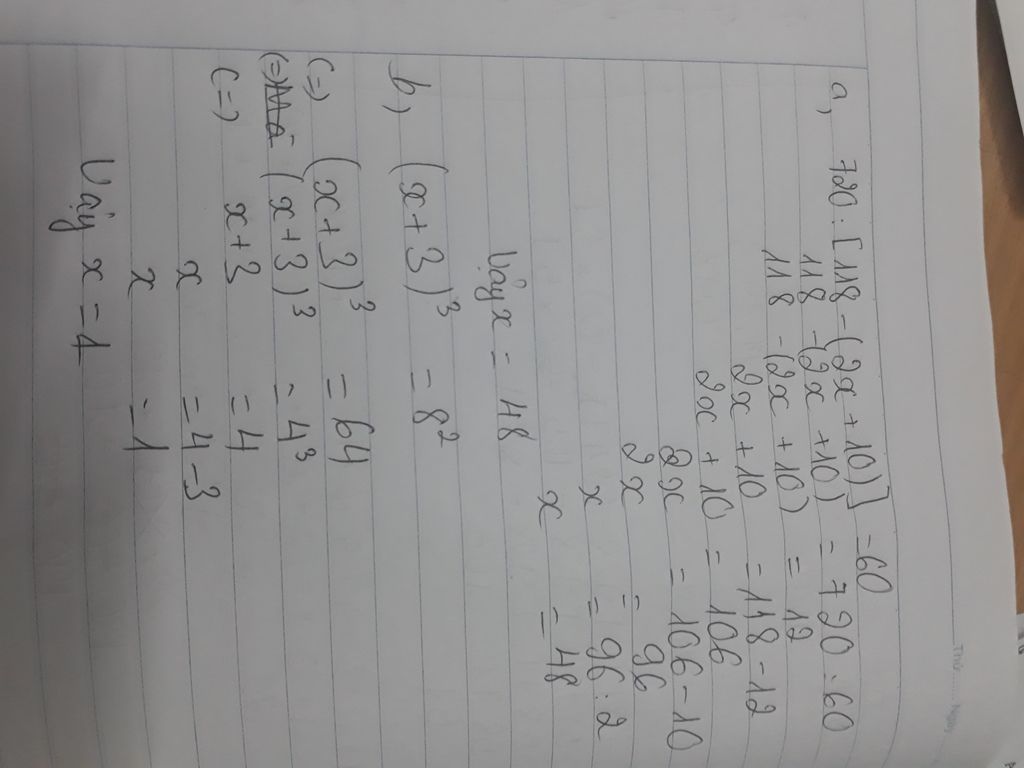 a, 720 : [118 - (2x + 10)] = 60
118 - (2x + 10) = 720 : 60
118 - (2x + 10) = 12
2x + 10 = 118 - 12
2x + 10 = 106
2x = 106 - 10
2x = 96
x = 96 : 2
x = 48
Vậy x = 48
b, (x + 3)³ = 8²
(=) (x + 3)³ = 64
(=) (x + 3)³ = 4³
(=) x + 3 = 4
x = 4 - 3
x = 1
Vậy x = 1